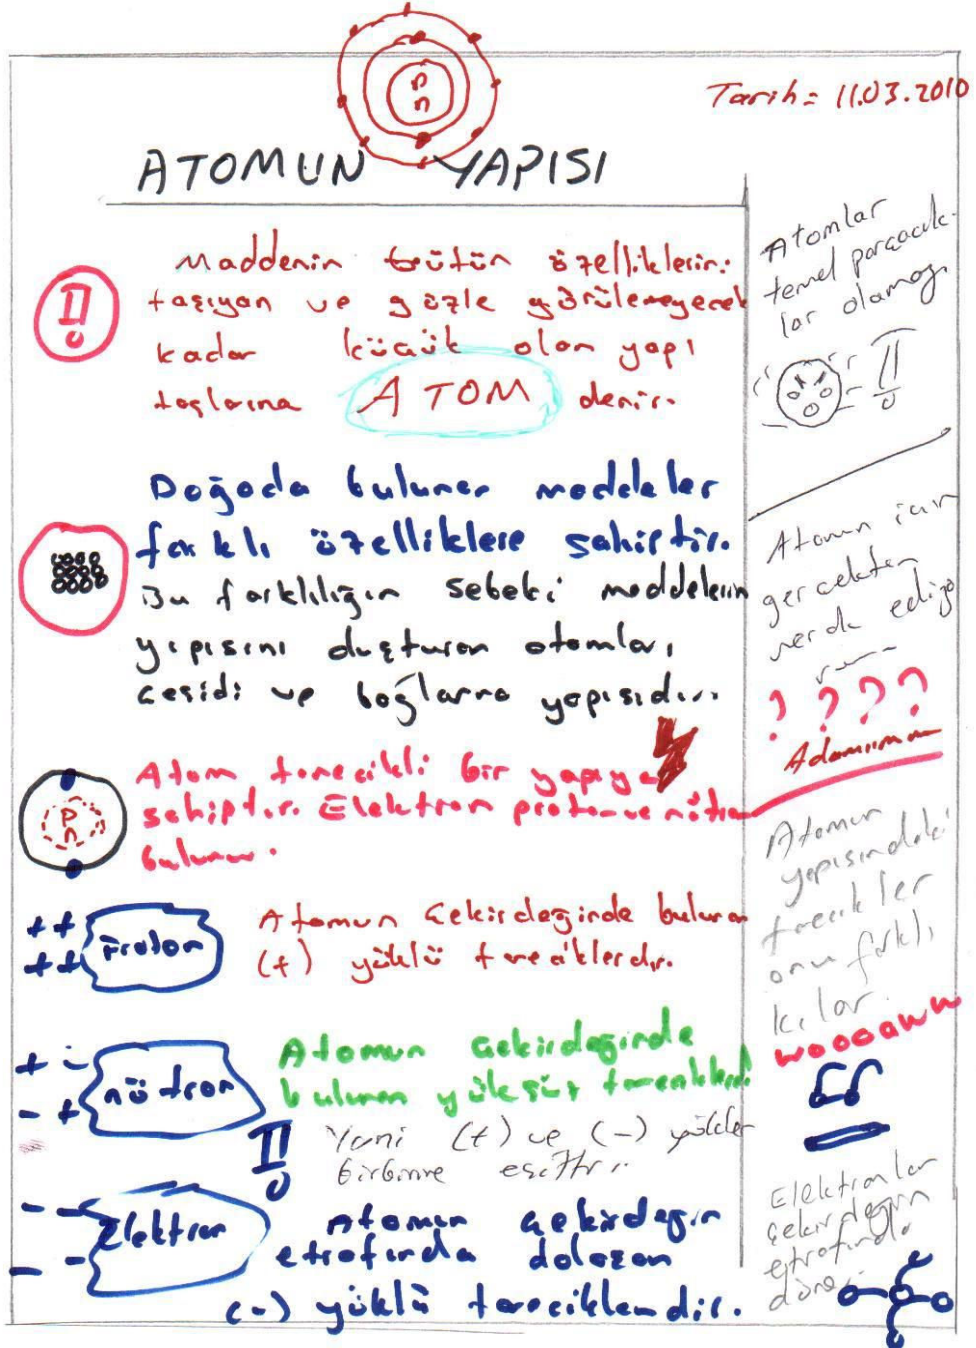 Tarih= 11.03.2010
ATOMUN YAPISI
Maddenin bütün özelliklerini
taşıyan ve gözle görülemeyecek
kadar küçük olan yapı
taşlarına ATOM denir.
Doğada bulunan maddeler
farklı özelliklere sahiptir.
Bu farklılığın sebebi maddelerin
yapısını oluşturan atomları,
çeşidi ve bağlarna yapısıdır.
Atom tanecikli bir yapıya
sahiptir. Elektron proton ve nötron
bulunur.
++
++
Proton
Atomun çekirdeğinde bulunan
(+) yüklü taneciklerdir.
+ -
- +
nötron
Atomun çekirdeğinde
bulunan yüksüz
Yani (+) ve (-) yükler
birbirine eşittir.
- -
- -
Elektron
Atomun çekirdeğin
etrafında dolaşan
(-) yüklü taneciklerdir.
Atomlar
temel parçacık-
lar olamaz
Atomun için
gerçekten
merak ediyo
? ? ? ?
Atomun
yapısındaki
tanecikler
onu farklı
kılar.
woooaww
Elektronlar
çekirdeğin
etrafında
döner.
n
n
P
n